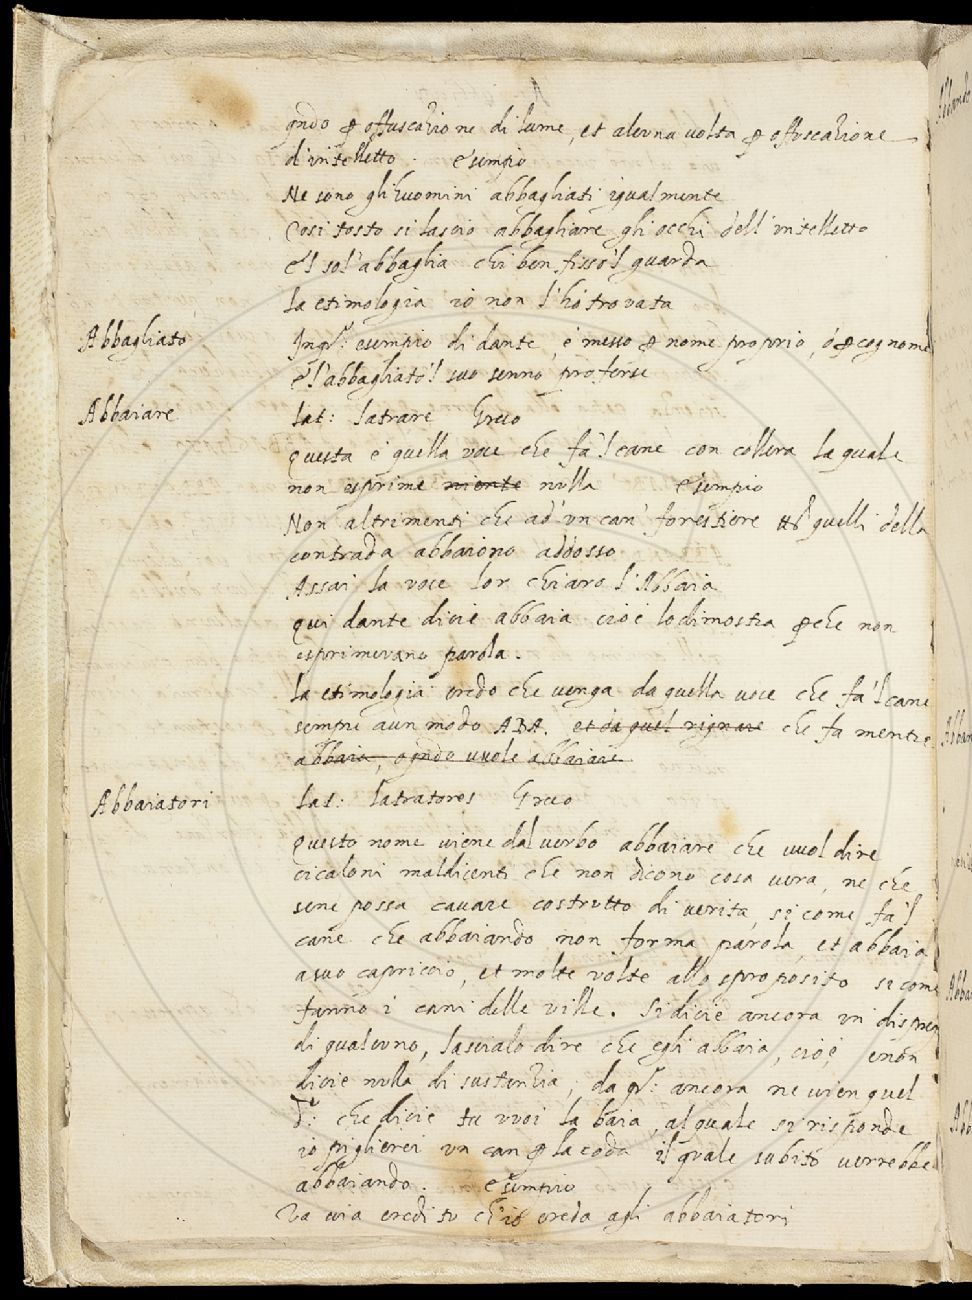 qndo ꝑ offuscatione di lume, et alcuna uolta ꝑ offuscatione
d'intelletto. Esempio
Ne sono gli huomini abbagliati igualmente
Così tosto si lasciò abbagliare gli occhi dell'intelletto
E'l sol'abbaglia chi ben fisso'l guarda
La etimologia io non l'hò trovata
Abbagliato
Inqo: esempio di dante, è messo ꝑ nome proprio, ò ꝑ cognome
E l'abbagliato'l suo senno proferse
Abbaiare
Lat: latrare Greco
Questa è quella voce che fà'l cane con collera la quale
non esprime niente nulla Esempio
Non altrimenti che ad'un can' forestiere quelli della
contrada abbaiono addosso
Assai la voce lor chiaro l'Abbaia
qui dante dicie abbaia cioè lo dimostra ꝑche non
esprimevano parola.
La etimologia credo che uenga da quella uoce che fà'l cane
sempre a un modo ABA. et da quel rignare che fa mentre
abbaia, o qndo vuole abbaiare
Abbaiatori
Lat: latratores Greco
Questo nome uiene dal uerbo abbaiare che vuol dire
cicaloni maldicenti che non dicono cosa uera, ne che
sene possa cavare costrutto di verità, si come fà'l
cane che abbaiando non forma parola, et abbaia
a suo capriccio, et molte volte allo sproposito si come
fanno i cani delle ville. Si dicie ancora in dispreg
di qualcuno, lascialo dire che egli abbaia, cioè, e non
dicie nulla di sustanzia, da qo: ancora ne uien quel
che dicie tu vuoi la baia, al quale si risponde
io piglierei un can ꝑ la coda il quale subito uerrebbe
abbaiando. Esempio
Va via credi tu ch'io creda agli abbaiatori